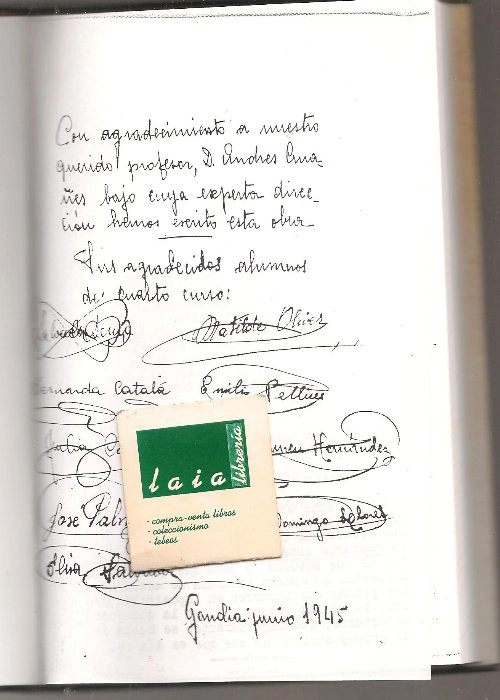 Con agradecimiento a nuestro
querido profesor, D. Andres Ama-
ñes bajo cuya experta direc-
ción hemos escrito esta obra
Sus agradecidos alumnos
de cuarto curso:
Matilde Oliver
Catalá Emilio Pellicer
Julia Hernández
Jose Domingo Lloret
Elisa
laia
librería
- compra-venta libros
- coleccionismo
- tebeos
Gandia junio 1945